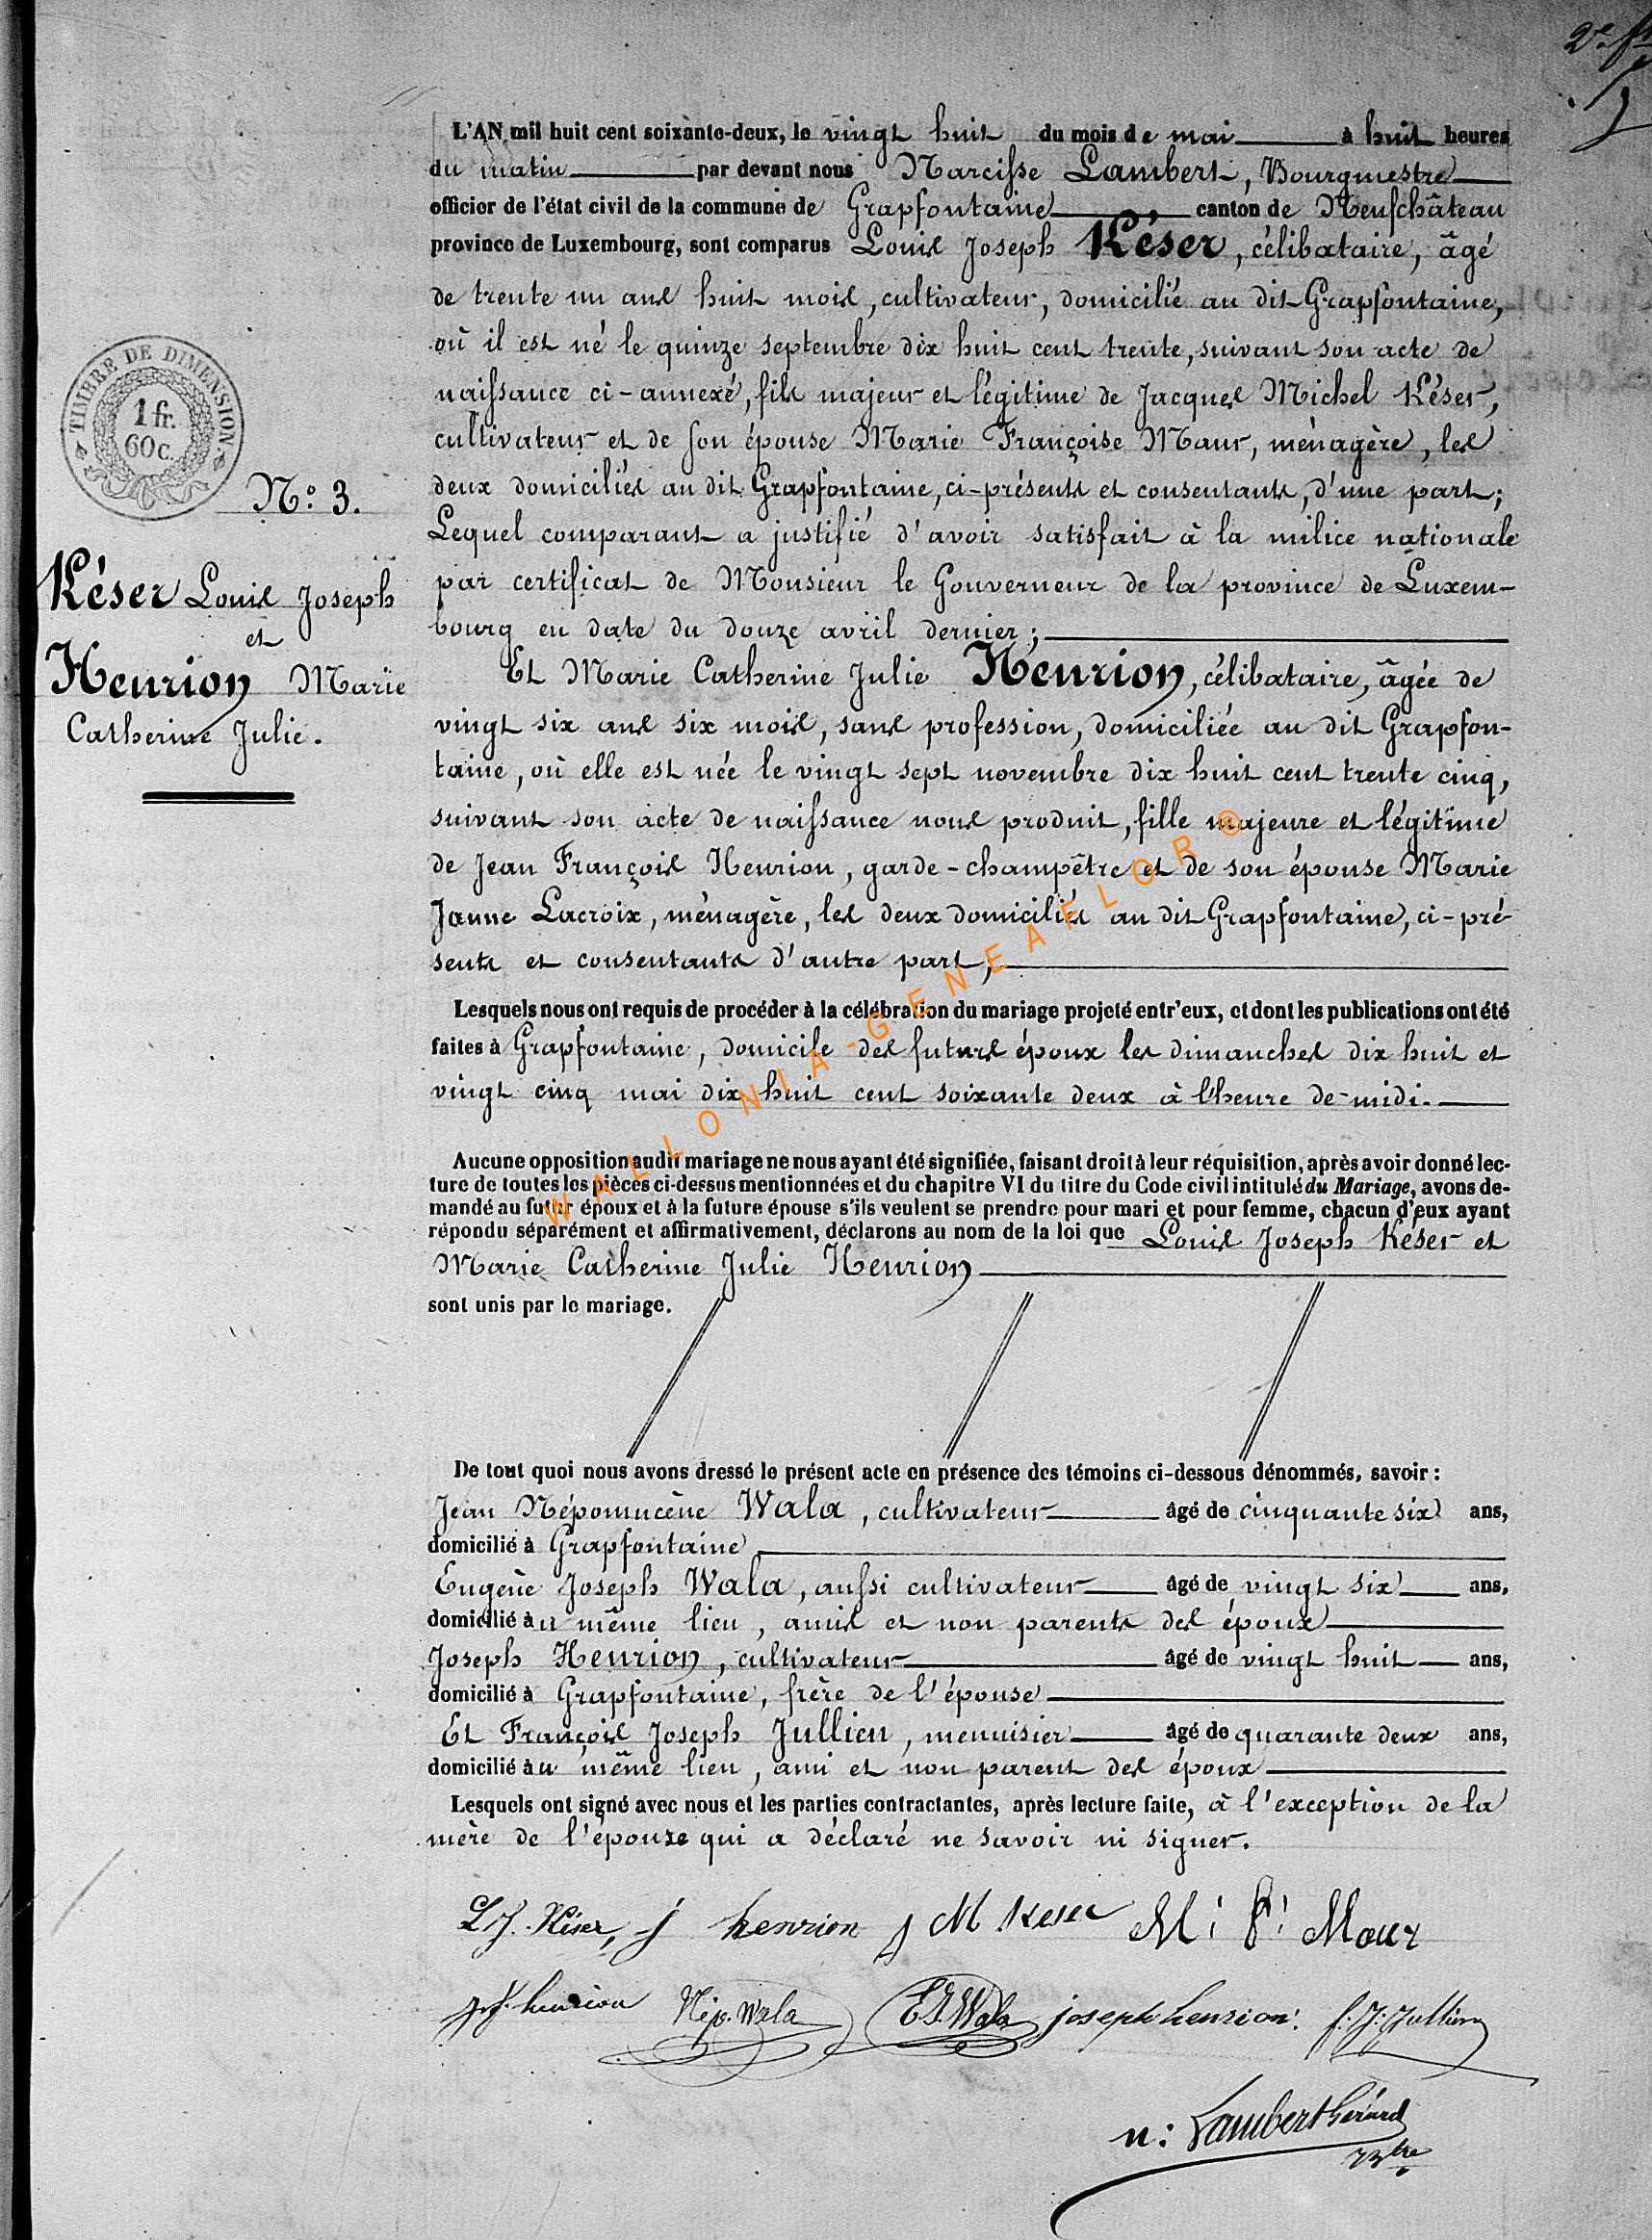 L'AN mil huit cent soixante-deux, le vingt huit du mois de mai à huit heures
du matin par devant nous Narcisse Lambert, Bourgmestre
officier de l'état civil de la commune de Grapfontaine canton de Neufchâteau
province de Luxembourg, sont comparus Louis Joseph Késer, célibataire, âgé
de trente un ans huit mois, cultivateur, domicilié au dit Grapfontaine,
où il est né le quinze septembre dix huit cent trente, suivant son acte de
naissance ci-annexé, fils majeur et légitime de Jacques Michel Késer,
cultivateur et de son épouse Marie Françoise Maur, ménagère, les
deux domiciliés au dit Grapfontaine, ci-présents et consentants, d'une part;
Lequel comparant a justifié d'avoir satisfait à la milice nationale
par certificat de Monsieur le Gouverneur de la province de Luxem-
bourg en date du douze avril dernier;
Et Marie Catherine Julie Henrion, célibataire, âgée de
vingt six ans six mois, sans profession, domiciliée au dit Grapfon-
taine, où elle est née le vingt sept novembre dix huit cent trente cinq,
suivant son acte de naissance nous produit, fille majeure et légitime
de Jean François Henrion, garde-champêtre et de son épouse Marie
Janne Lacroix, ménagère, les deux domiciliés au dit Grapfontaine, ci-pré-
sents et consentants d'autre part,
Lesquels nous ont requis de procéder à la célébration du mariage projeté entr'eux, et dont les publications ont été
faites à Grapfontaine, domicile des futurs époux les dimanches dix huit et
vingt cinq mai dix huit cent soixante deux à l'heure de midi.
Aucune opposition audit mariage ne nous ayant été signifiée, faisant droit à leur réquisition, après avoir donné lec-
ture de toutes les pièces ci-dessus mentionnées et du chapitre VI du titre du Code civil intitulé du Mariage, avons de-
mandé au futur époux et à la future épouse s'ils veulent se prendre pour mari et pour femme, chacun d'eux ayant
répondu séparément et affirmativement, déclarons au nom de la loi que Louis Joseph Késer et
Marie Catherine Julie Henrion
sont unis par le mariage.
De tout quoi nous avons dressé le présent acte en présence des témoins ci-dessous dénommés, savoir :
Jean Népomucène Wala, cultivateur âgé de cinquante six ans,
domicilié à Grapfontaine
Eugène Joseph Wala, aussi cultivateur âgé de vingt six ans,
domicilié au même lieu, amis et non parents des époux
Joseph Henrion, cultivateur âgé de vingt huit ans,
domicilié à Grapfontaine, frère de l'épouse
Et François Joseph Jullien, menuisier âgé de quarante deux ans,
domicilié au même lieu, ami et non parent des époux
Lesquels ont signé avec nous et les parties contractantes, après lecture faite, à l'exception de la
mère de l'épouse qui a déclaré ne savoir ni signer.
L.J. Késer, j henrion J M Keser M: f: Maur
J.f. henrion Nép. Wala E.J. Wala joseph henrion. f.J. Jullien
n: Lambert Gérard
Btre
TIMBRE DE DIMENSION
1 fr.
60 c.
N° 3.
Késer Louis Joseph
et
Henrion Marie
Catherine Julie.
WALLONIA-GENEAFLOR ©